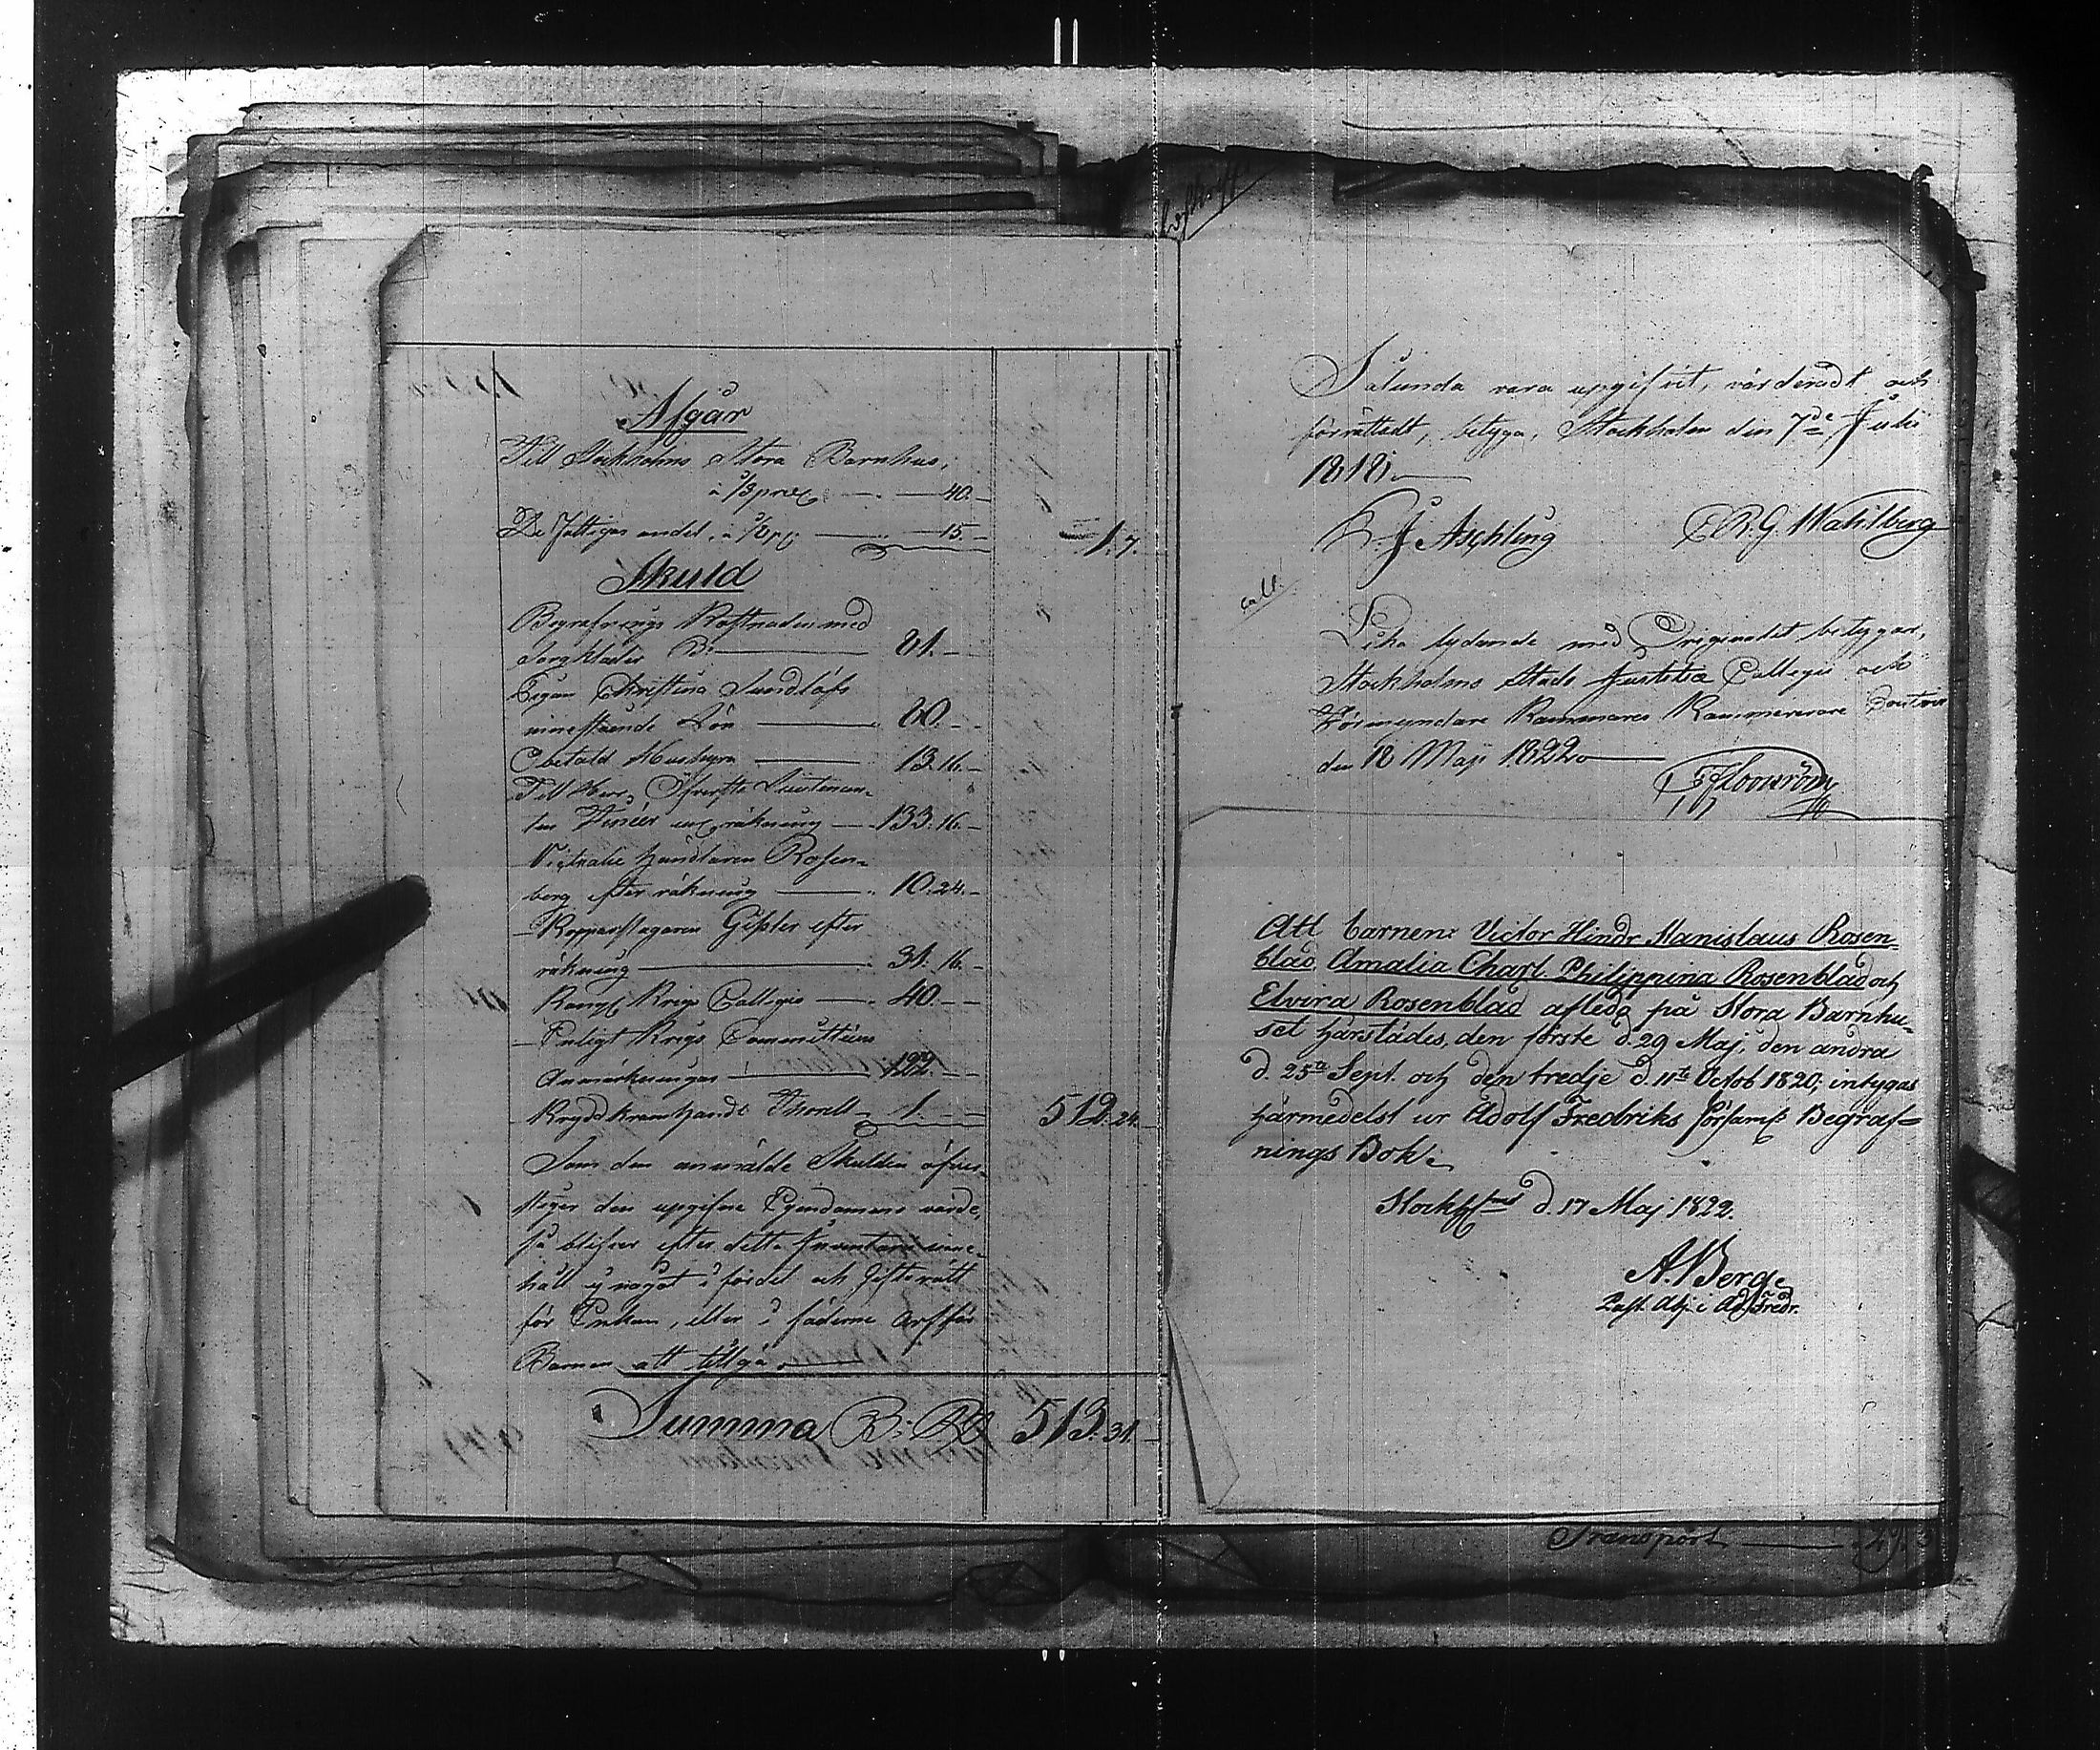 Afgår
Till Stockholms Stora Barnhus,
à 1/8 pr Ct. — 40.–
De Fattigas andel, à 1/8 pCt — 15.– 1. 7.
Skuld
Begrafnings Kostnaden med
Sorgkläder B:o — 81.–
Pigan Christina Sundlöfs
innestående Lön — 80.–
Obetald Hushyra — 13. 16.–
Till Herr Öfverste Lieutenan-
ten räkning — 133. 16.–
Victualie Handlaren Rosen-
berg efter räkning — 10. 24.–
Kopparslagaren Gissler efter
räkning — 31. 16.–
Kongl Krigs Collegio — 40.–
Enligt Krigs Committéens
Anmärkningar — 122.–
Kryddkramhandl Thorell — 1.– 512. 24.
Som den anmälde Skulden öfver-
stiger den uppgifne Egendomens värde,
så blifver efter detta Inventarii inne-
håll ej något i fördel och Giftorätt
för Enkan, eller i fäderne Arf för
Barnen att tillgå.
Summa B:o Rd 513. 31.–
Sålunda vara upgifvit, värderadt och
förrättadt, betyga, Stockholm den 7de Julii
1818.
J Aschling C R. G. Wahlberg
Lika lydande med Originalet betygar,
Stockholms Stads Justitiæ Collegii och
Förmyndare Kammares Kammererare Contoir
den 18 Maji 1822
Att barnen: Victor Hindr Stanislaus Rosen-
blad, Amalia Charl. Philippina Rosenblad och
Elvira Rosenblad aflidit på Stora Barnhu-
set härstädes, den förste d. 29 Maj, den andra
d. 25te Sept. och den tredje d. 11te Octob 1820; intygas
härmedelst ur Adolf Fredriks Församls Begraf-
nings Bok.
Stockholm d. 17 Maj 1822.
A. Berg.
Past. Adj. i Ad. Fredr.
Transport